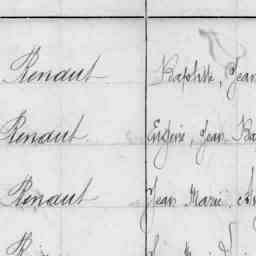 Renaut Baptiste, Jean
Renaut Eugène, Jean Ba
Renaut Jean Marie,